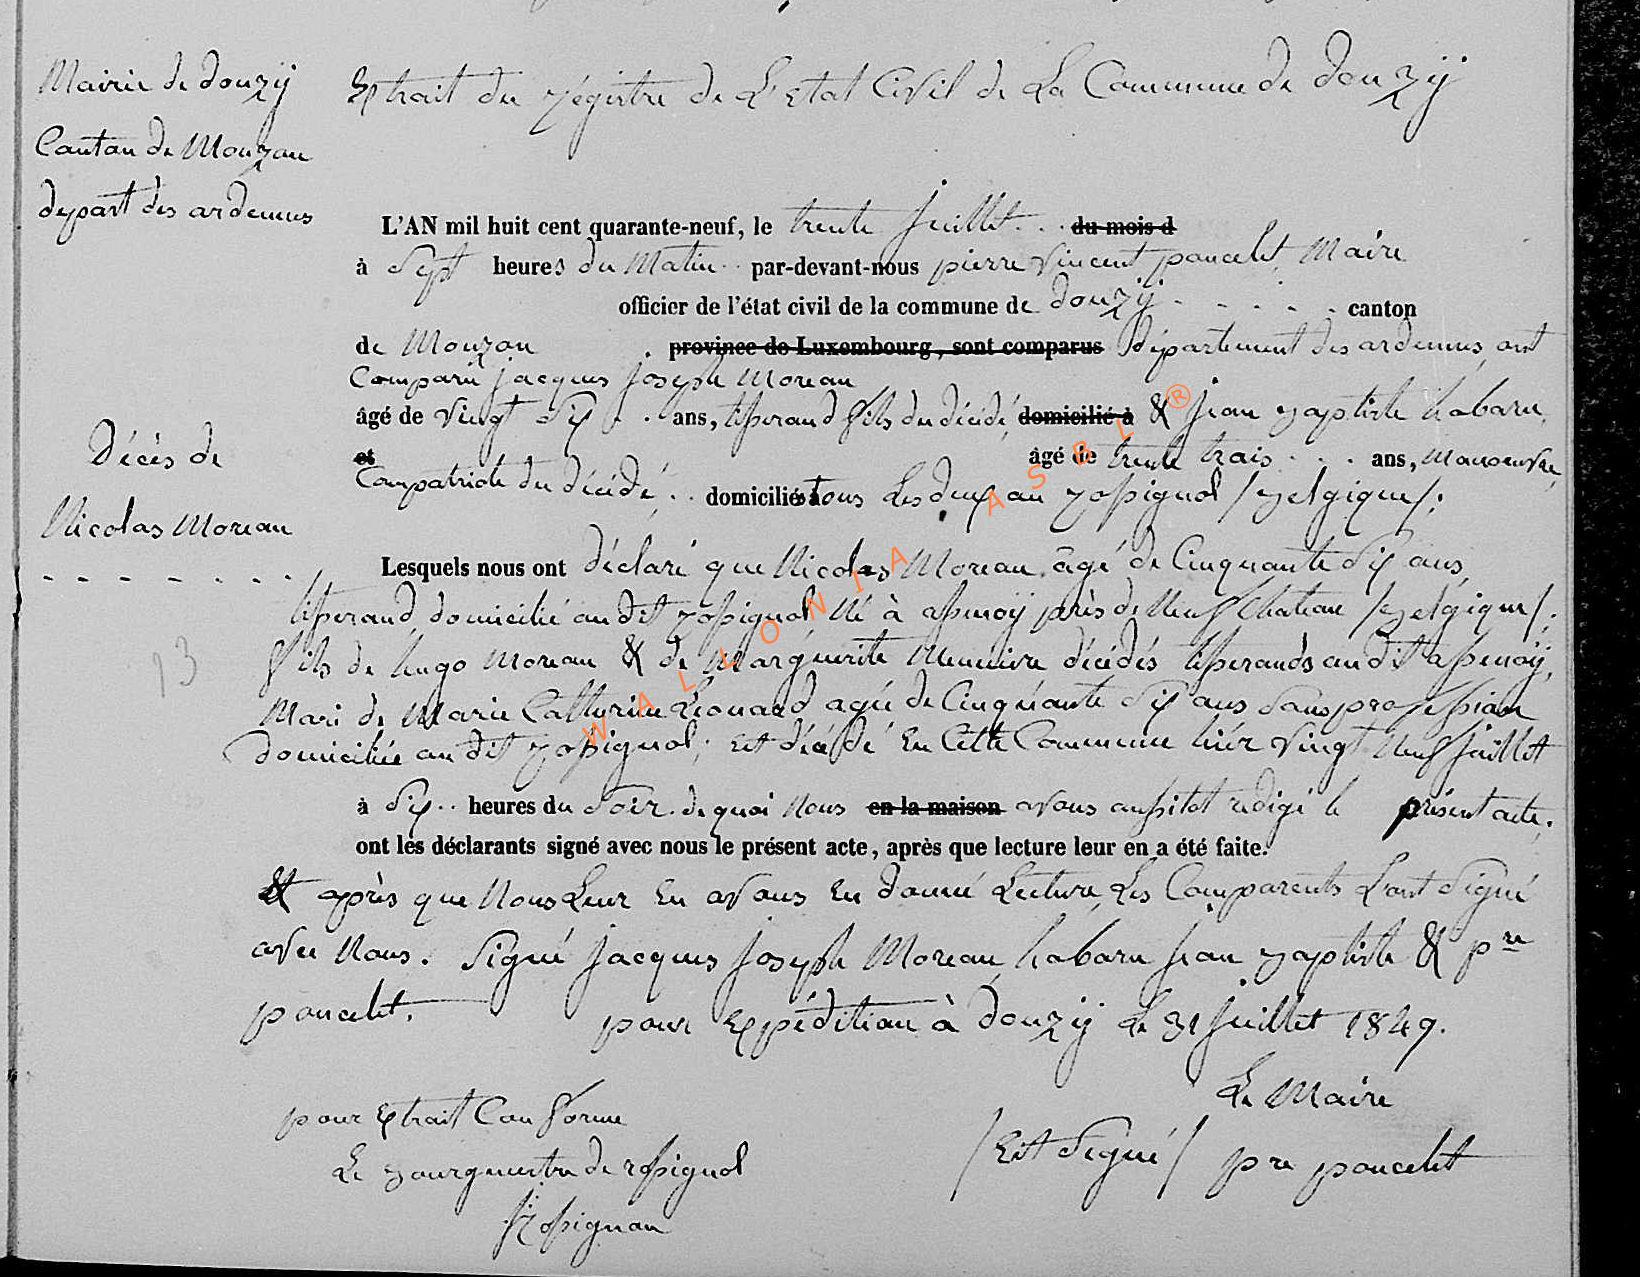 Mairie de douzÿ
Canton de Mouzon
depart des ardennes
Extrait du régistre de L'Etat Civil de La Commune de douzÿ
L'AN mil huit cent quarante-neuf, le trente juillet . . . du mois d
à Sept heures du Matin . . par-devant-nous pierre Vincent poncelet, Maire
officier de l'état civil de la commune de douzÿ - - - - - canton
de Mouzon province de Luxembourg, sont comparus département des ardennes, ont
Comparu jacques joseph Moreau
âgé de Vingt Six . . ans, tisserand fils du décédé, domicilié à & jean Baptiste habaru,
et âgé de trente trois . . . ans, Manoeuvre,
Compatriote du décédé, . . domiciliés à tous les deux au Rossignol /Belgique/;
Décès de
Nicolas Moreau
- - - - - - - -
Lesquels nous ont déclaré que Nicolas Moreau, âgé de Cinquante Six ans,
tisserand, domicilié au dit Rossignol Né à assenoÿ près de Neufchateau /Belgique/;
13
fils de hugo Moreau & de Marguerite décédés tisserands au dit assenoÿ,
Mari de Marie Catherine Léonard agée de Cinquante Six ans Sans profession
domiciliée au dit Rossignol; est décédé En Cette Commune hiér Vingt Neuf juillet
à Six . . heures du Soir . de quoi Nous en la maison avons aussitot redigé le présent acte.
ont les déclarants signé avec nous le présent acte, après que lecture leur en a été faite.
& après que Nous Leur En avons En donné Lecture, Les Comparents L'ont Signé
avec Nous. Signé jacques joseph Moreau, habaru jean Baptiste & pre
poncelet. pour Expédition à douzÿ Le 31 juillet 1849.
Le Maire
pour Extrait Conforme
/Est Signé/ pre poncelet
Le Bourguestre de Rossignol
WALLONIA ASBL ®